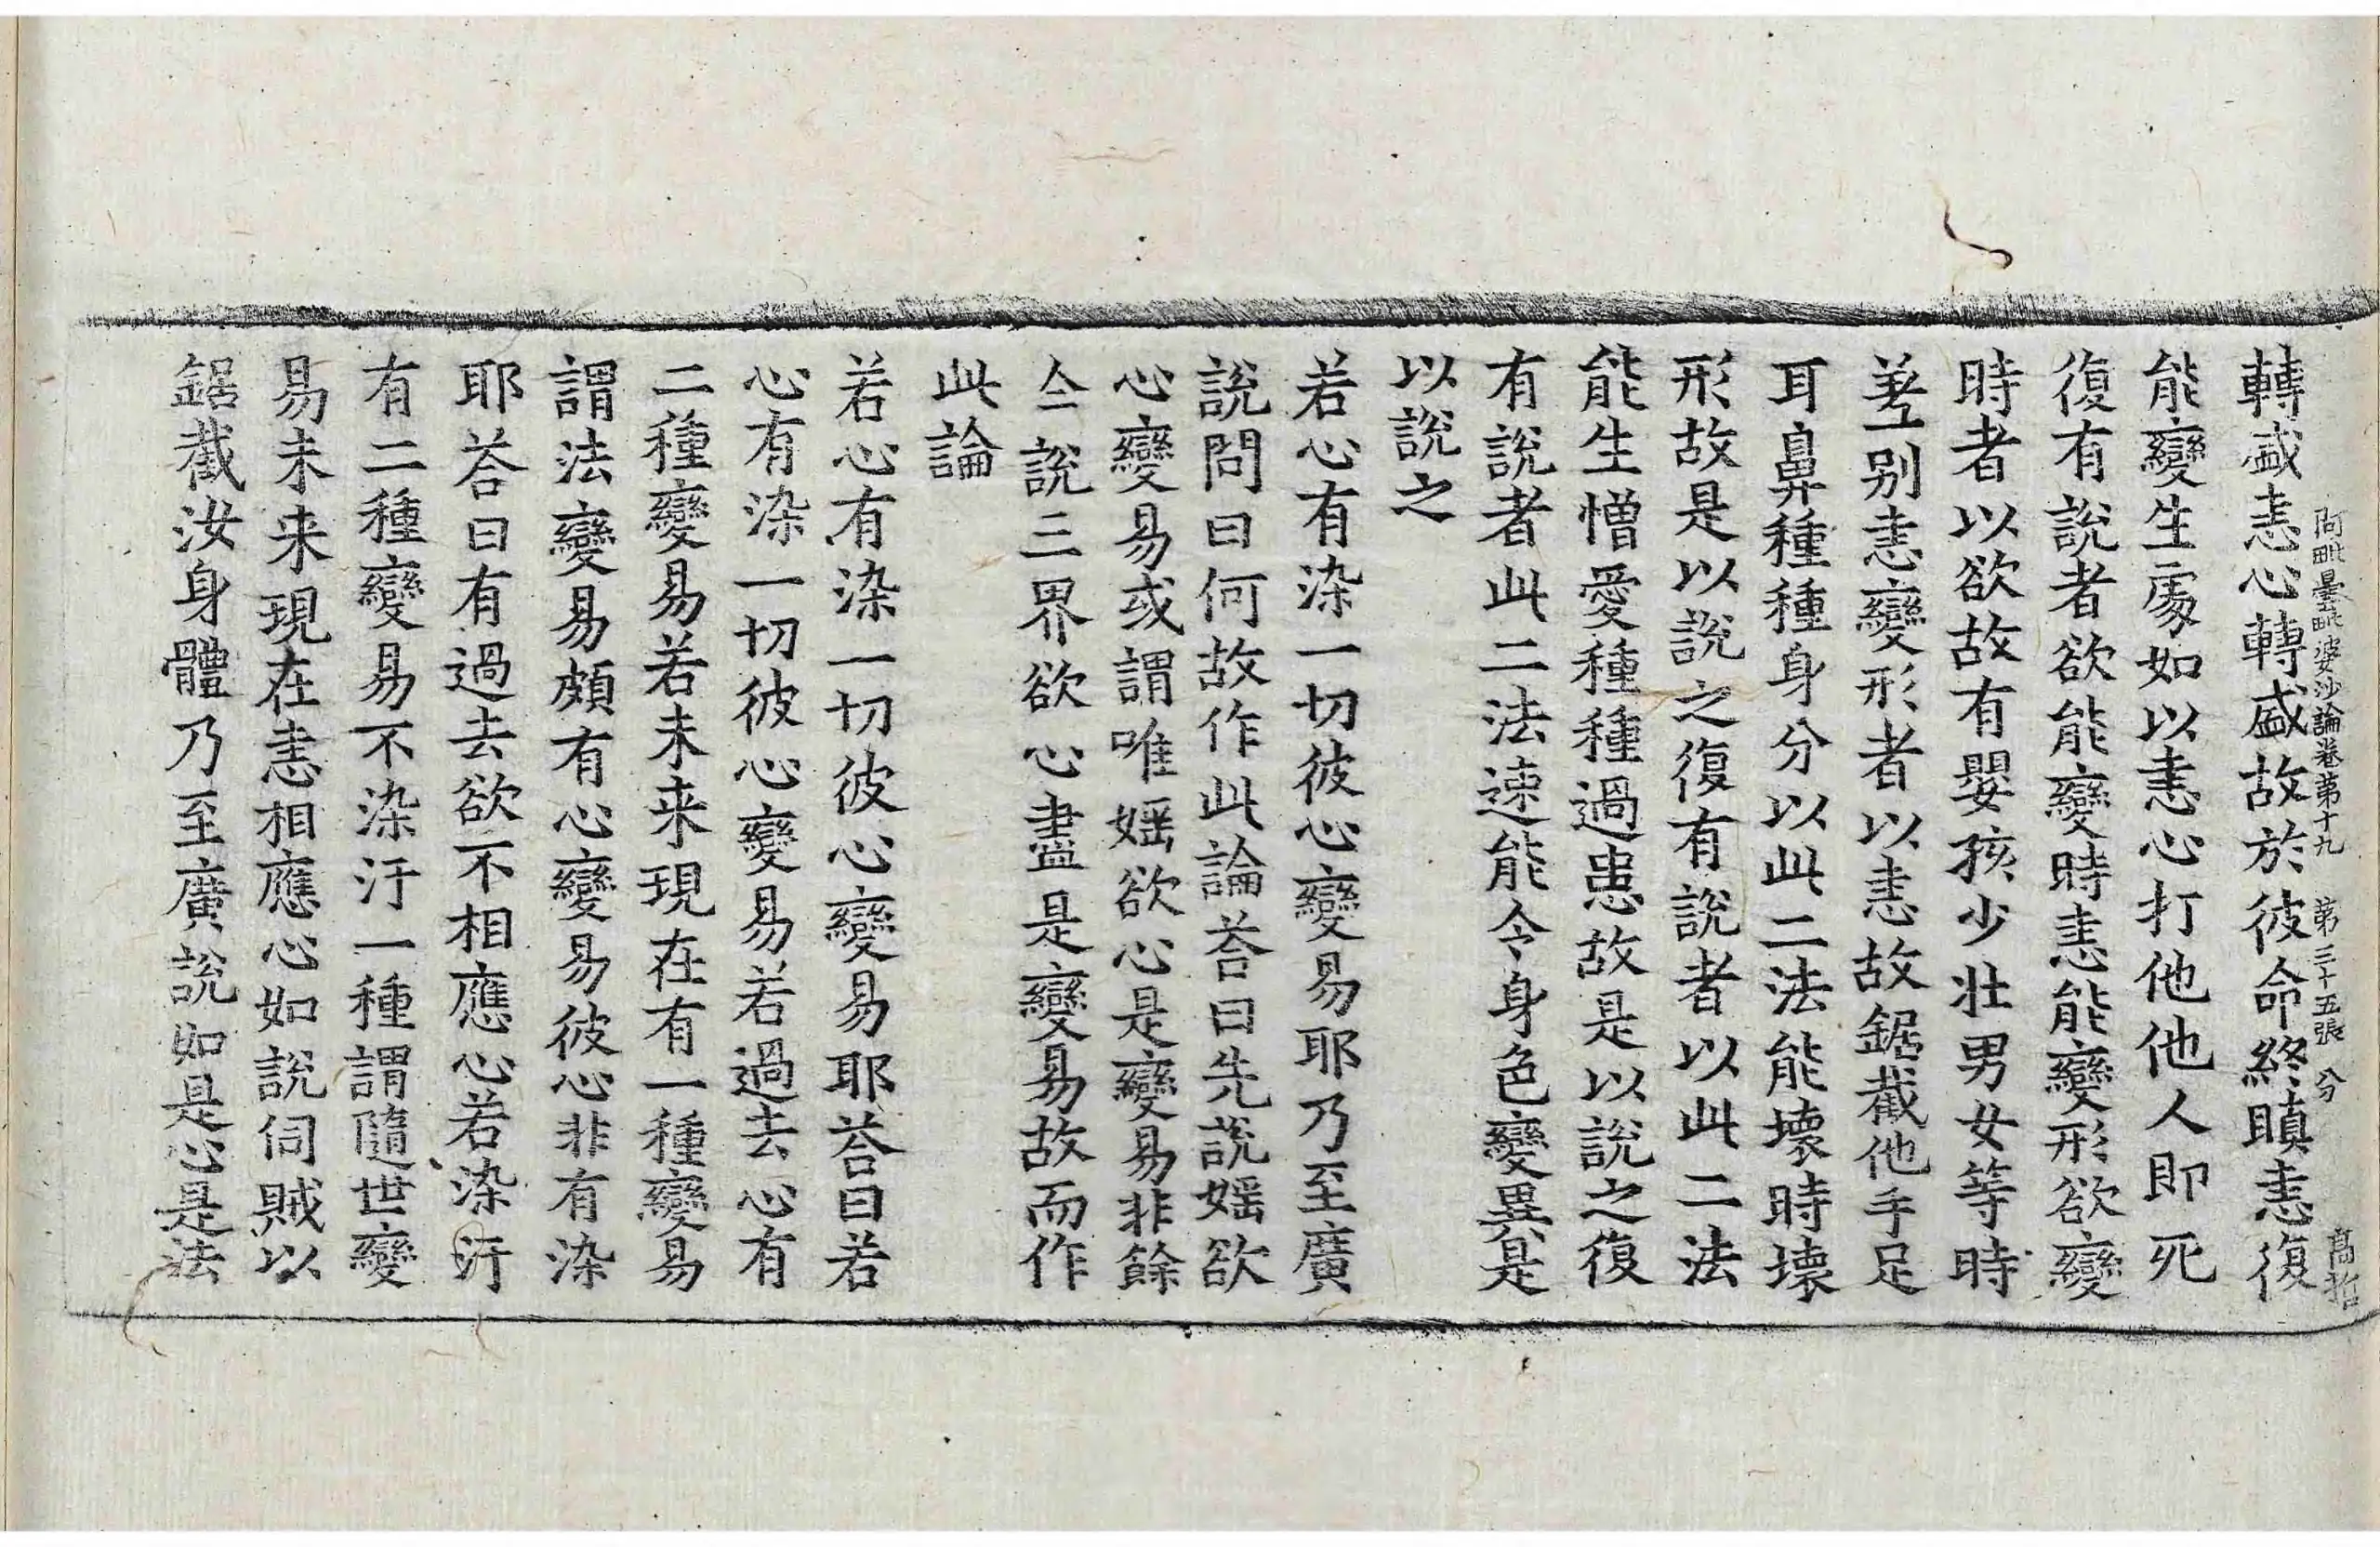 阿毗曇毗婆沙論卷第十九 第三十五張 分 高哲
轉盛恚心轉盛故於彼命終瞋恚復
能變生䖏如以恚心打他他人即死
復有說者欲能變時恚能變形欲變
時者以欲故有嬰孩少壯男女等時
差别恚變形者以恚故鋸截他手足
耳鼻種種身分以此二法能壞時壞
形故是以說之復有說者以此二法
能生憎愛種種過患故是以說之復
有說者此二法速能令身色變異是
以說之
若心有染一切彼心變易耶乃至廣
說問曰何故作此論荅曰先說婬欲
心變易或謂唯婬欲心是變易非餘
仝說三界欲心盡是變易故而作
此論
若心有染一切彼心變易耶荅曰若
心有染一切彼心變易若過去心有
二種變易若未来現在有一種變易
謂法變易頗有心變易彼心非有染
耶荅曰有過去欲不相應心若染汙
有二種變易不染汙一種謂隨世變
易未来現在恚相應心如說伺賊以
鋸截汝身體乃至廣說如是心是法